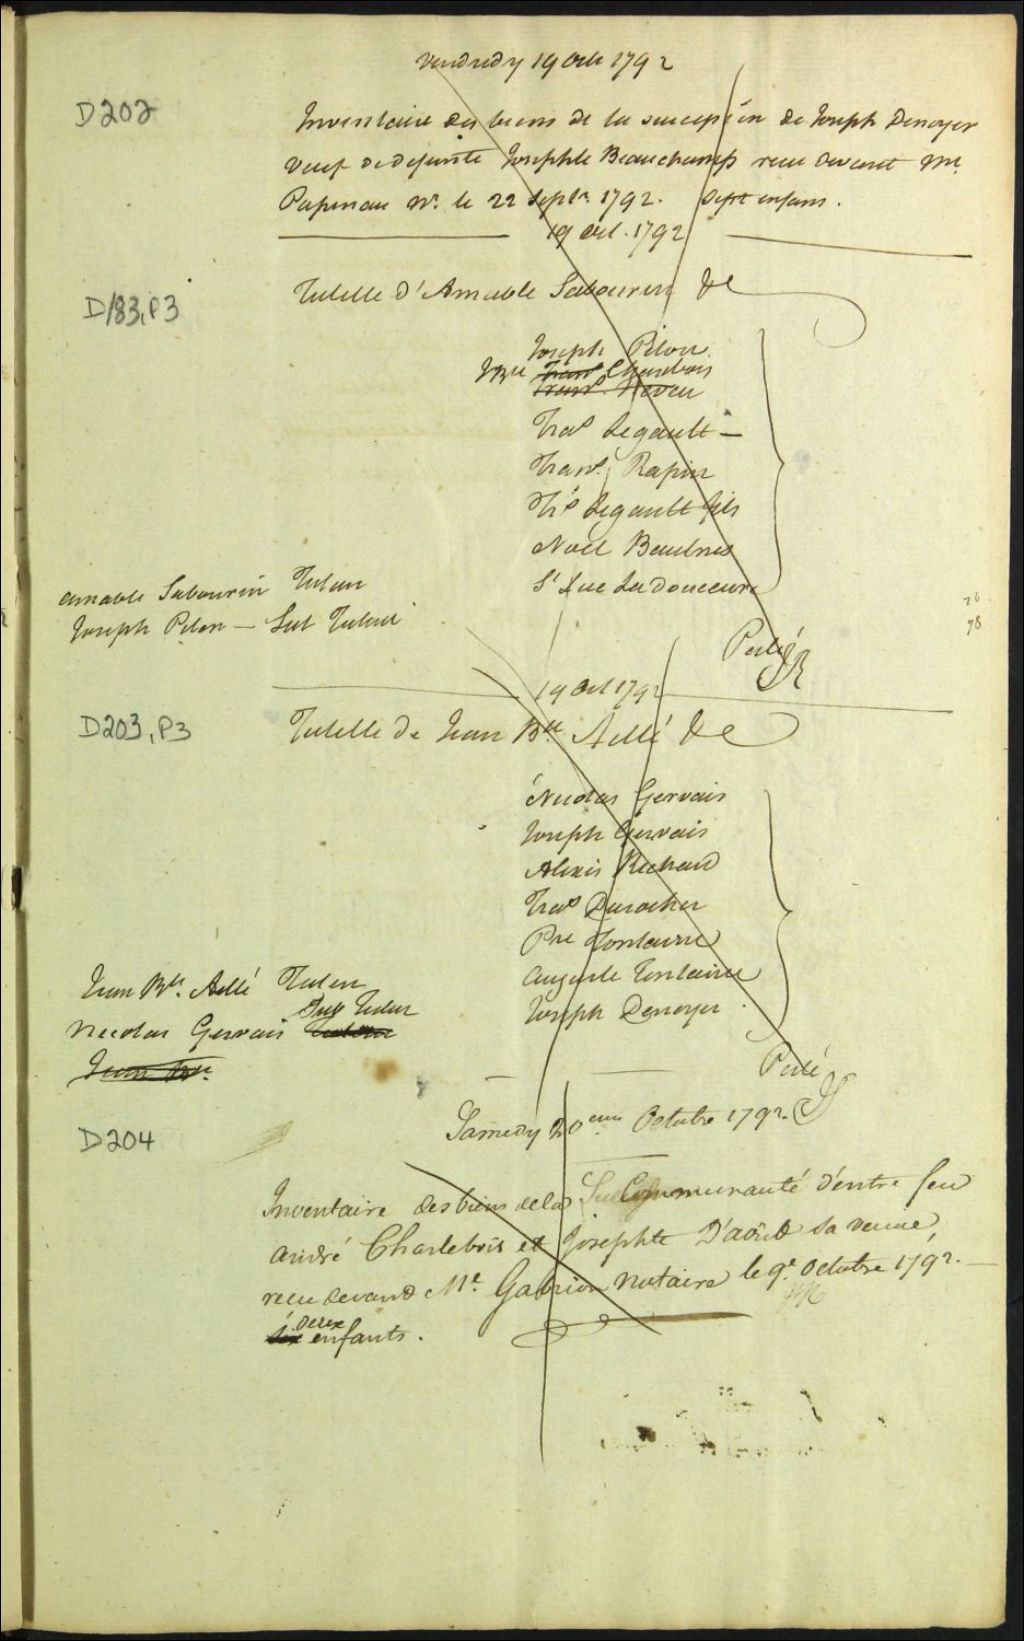 Vendredy 19 Octe 1792
D202
Inventaire des biens de la succession de Joseph Denoyer
veuf de defunte Josephte Beauchamp recu devant Me
Papineau Nre. le 22 Septre. 1792. Sept enfans.
19 Oct. 1792
D183, P3
Tutelle d'Amable Sabourin &c
Joseph Pilon
JBte Frans Charlebois
Frans. Neveu
Fras Legault —
Frans. Rapin
Frs Legault fils
Noel Beaulnes
St Luc Ladouceur
Amable Sabourin Tuteur
Joseph Pilon — Sub Tuteur
78
19 Oct 1792
D203, P3
Tutelle de Jean Bte Asselé &c
Nicolas Gervais
Joseph Gervais
Alexis Richard
Fras Durocher
Pre Fontaine
Auguste Fontaine
Joseph Denoyer
Jean Bte. Asselé Tuteur
Sub Tuteur
Nicolas Gervais Tuteur
Jean Bte.
Samedy 20eme Octobre 1792.
D204
Inventaire des biens de la Communauté d'entre feu
André Charlebois et Josephte D'aoûst sa veuve,
recu devant Me. Gabrion notaire le 9e. Octobre 1792.—
deux
six enfants.